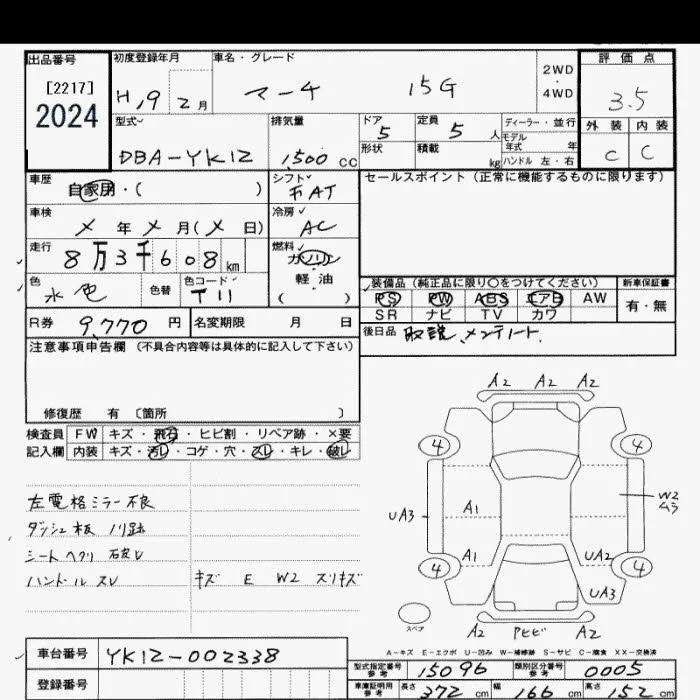 出品番号 初度登録年月 車名・グレード 2WD・4WD 評価点
[2217] H19 2月 マーチ 15G 3.5
2024
外装 内装
C C
型式 排気量 ドア 定員 ディーラー・並行
DBA-YK12 1500 CC 5 5人 モデル年式 年
形状 積載 kg ハンドル 左・右
車歴 自家用・( ) シフト FAT セールスポイント (正常に機能するものに限ります)
車検 X 年 X 月 (X 日) 冷房 AC
走行 8万3千608km 燃料 ガソリン
軽油
( )
色 水色 色替 色コード T11
装備品 (純正品に限り〇をつけてください) 新車保証書
PS PW ABS エアB AW 有・無
SR ナビ TV カワ
R券 9,770 円 名変期限 月 日
後日品 取説、メンテノート
注意事項申告欄 (不具合内容等は具体的に記入して下さい)
修復歴 有 〔箇所 〕
検査員 FW キズ・飛石・ヒビ割・リペア跡・×要
記入欄 内装 キズ・汚レ・コゲ・穴・スレ・キレ・破レ
左電格ミラー不良
ダッシュ板 ノリ跡
シートヘタリ 破レ
ハンドルスレ キズ E W2 スリキズ
A2 A2 A2
4 4
UA3 A1 W2
ムラ
A1 UA2
4 4
UA3
スペア A2 A2
A-キズ E-エクボ U-凹み W-補修跡 S-サビ C-腐食 XX-交換済
車台番号 YK12-002338
登録番号
型式指定番号 参考 15096 類別区分番号 参考 0005
車庫証明用 参考 長さ 372 cm 幅 166 cm 高さ 152 cm